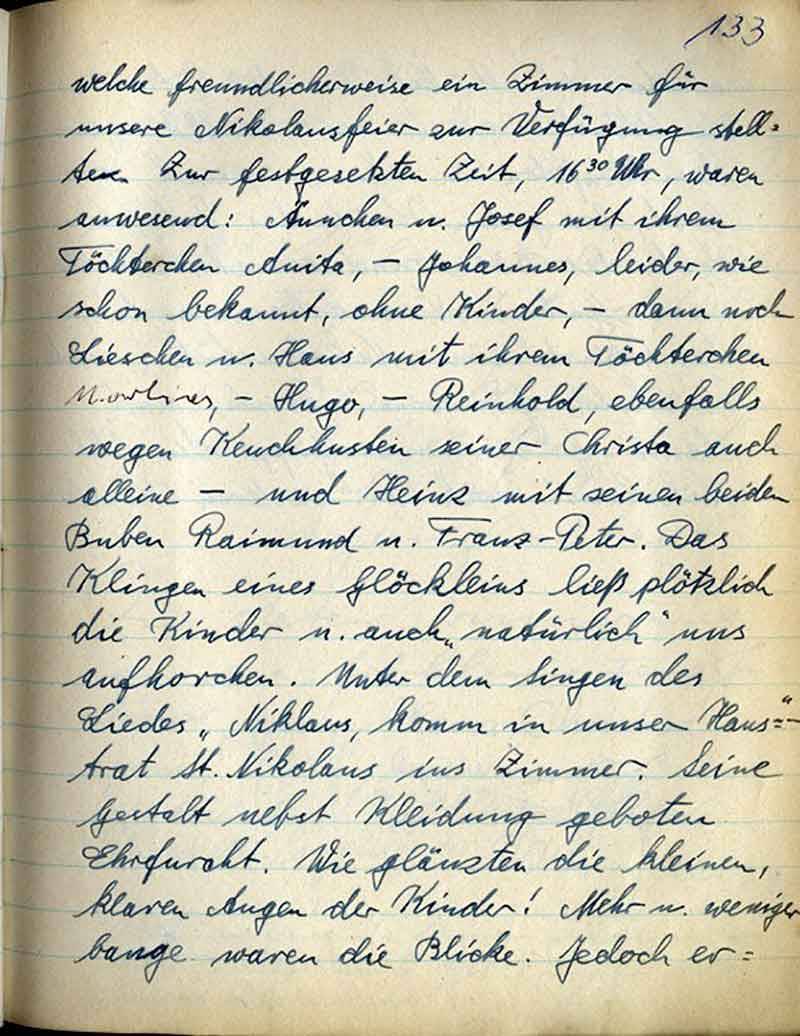 133
welche freundlicherweise ein Zimmer für
unsere Nikolausfeier zur Verfügung stell=
ten. Zur festgesetzten Zeit, 16³⁰ Uhr, waren
anwesend: Ännchen u. Josef mit ihrem
Töchterchen Anita, – Johannes, leider, wie
schon bekannt, ohne Kinder, – dann noch
Lieschen u. Hans mit ihrem Töchterchen
– Hugo, – Reinhold, ebenfalls
wegen Keuchhusten seiner Christa auch
alleine – und Heinz mit seinen beiden
Buben Raimund u. Franz-Peter. Das
Klingen eines Glöckleins ließ plötzlich
die Kinder u. auch „natürlich“ uns
aufhorchen. Unter dem Singen des
Liedes „Niklaus, komm in unser Haus“=–
trat St. Nikolaus ins Zimmer. Seine
Gestalt nebst Kleidung geboten
Ehrfurcht. Wie glänzten die kleinen,
klaren Augen der Kinder! Mehr u. weniger
bange waren die Blicke. Jedoch er=